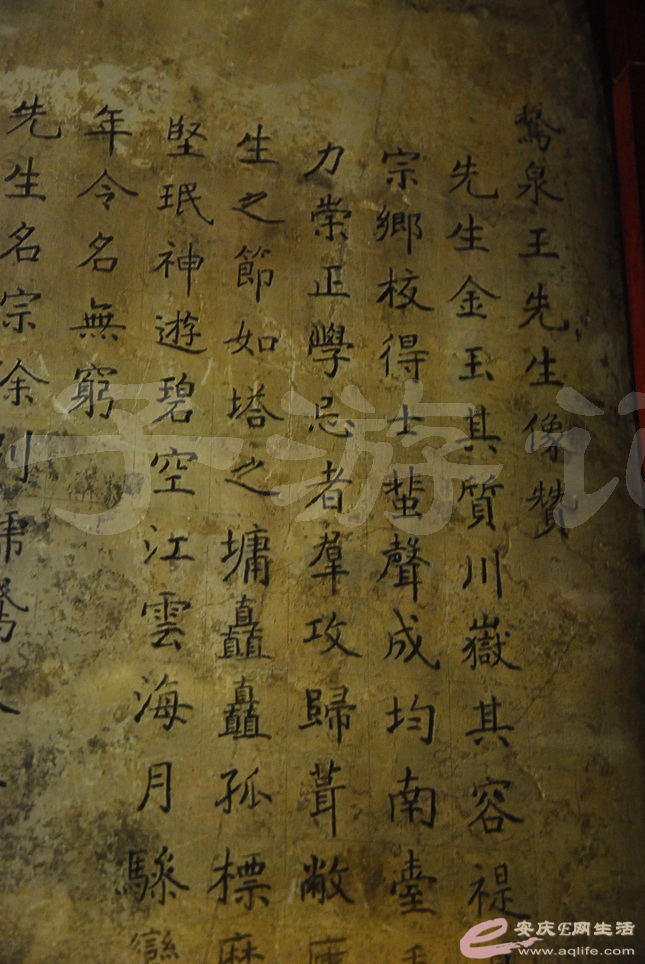 泉王先生像贊
先生金玉其質川嶽其容禔
宗鄉校得士蜚聲成均南臺
力崇正學忌者羣攻歸葺敝
生之節如塔之墉矗矗孤標
堅珉神遊碧空江雲海月驂鸞
年令名無窮
先生名宗徐别號
子游记
安庆E网生活
www.aqlife.com